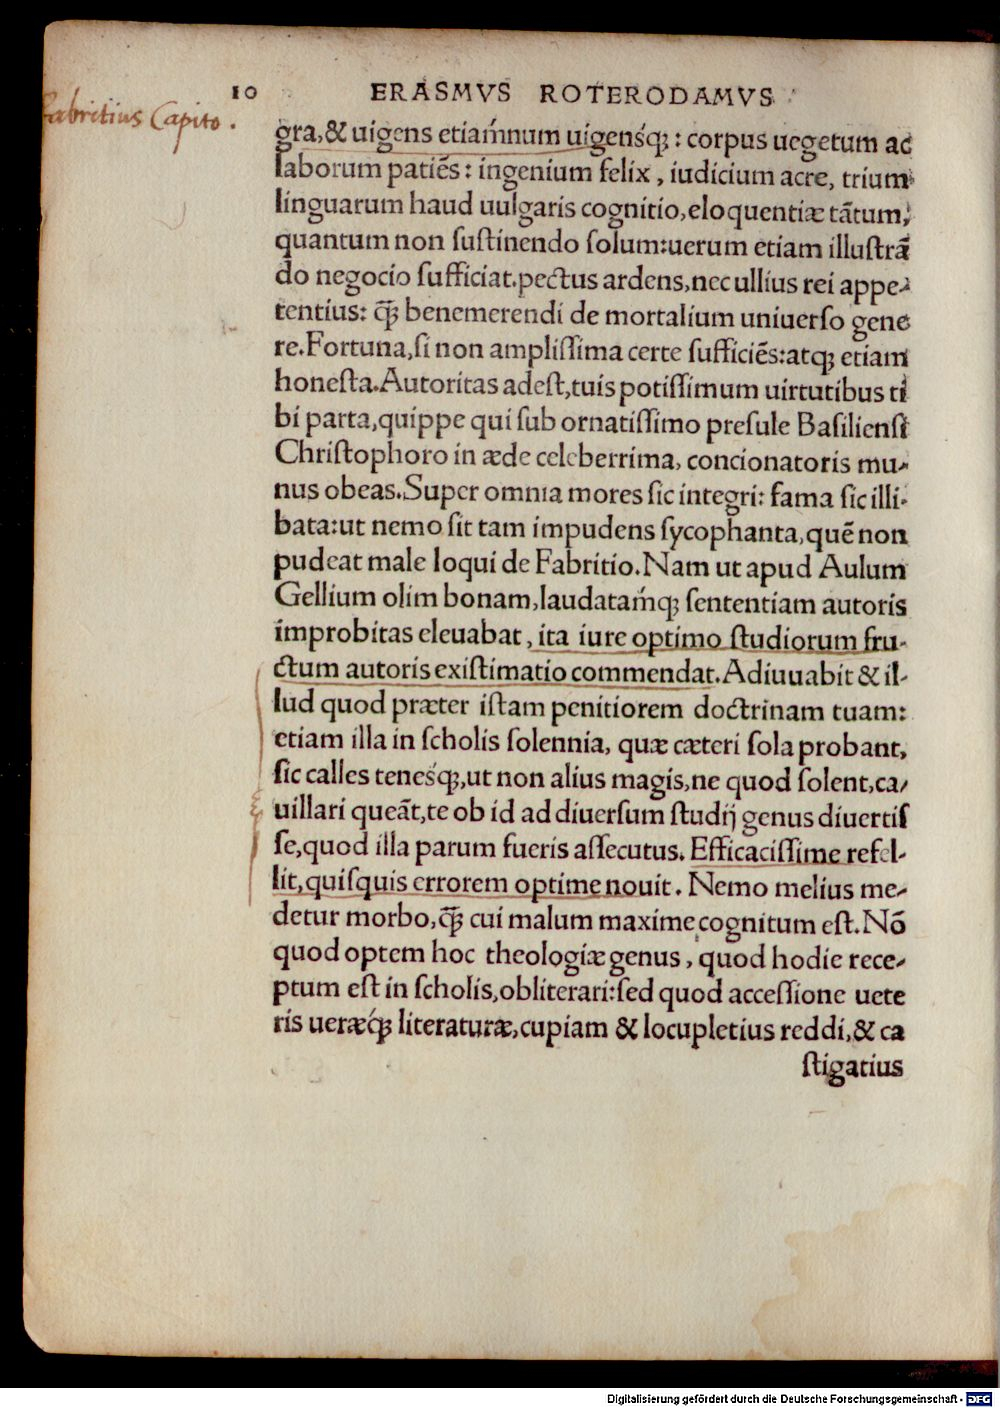 10 ERASMVS ROTERODAMVS
Fabritius Capito.
gra,& uigens etiam̃num uigensq́;: corpus uegetum ac
laborum patiẽs: ingenium felix, iudicium acre, trium
linguarum haud uulgaris cognitio,eloquentiæ tãtum,
quantum non ſuſtinendo ſolum:uerum etiam illuſtrã
do negocio ſufficiat.pectus ardens,nec ullius rei appe-
tentius: q̃; benemerendi de mortalium uniuerſo gene
re.Fortuna,ſi non ampliſſima certe ſufficiẽs:atq; etiam
honeſta.Autoritas adeſt,tuis potiſſimum uirtutibus ti
bi parta,quippe qui ſub ornatiſſimo preſule Baſilienſi
Chriſtophoro in æde celeberrima, concionatoris mu-
nus obeas.Super omnia mores ſic integri: fama ſic illi-
bata:ut nemo ſit tam impudens ſycophanta,quẽ non
pudeat male loqui de Fabritio.Nam ut apud Aulum
Gellium olim bonam,laudatam̃q; ſententiam autoris
improbitas eleuabat, ita iure optimo ſtudiorum fru-
ctum autoris exiſtimatio commendat.Adiuuabit & il-
lud quod præter iſtam penitiorem doctrinam tuam:
etiam illa in ſcholis ſolennia, quæ cæteri ſola probant,
ſic calles tenesq́;,ut non alius magis,ne quod ſolent,ca-
uillari queãt,te ob id ad diuerſum ſtudij genus diuertiſ
ſe,quod illa parum fueris aſſecutus. Efficaciſſime refel-
lit,quiſquis errorem optime nouit. Nemo melius me-
detur morbo,q̃; cui malum maxime cognitum eſt.Nõ
quod optem hoc theologiæ genus, quod hodie rece-
ptum eſt in ſcholis,obliterari:ſed quod acceſſione uete
ris ueræq́; literaturæ,cupiam & locupletius reddi,& ca
ſtigatius
Digitalisierung gefördert durch die Deutsche Forschungsgemeinschaft - DFG